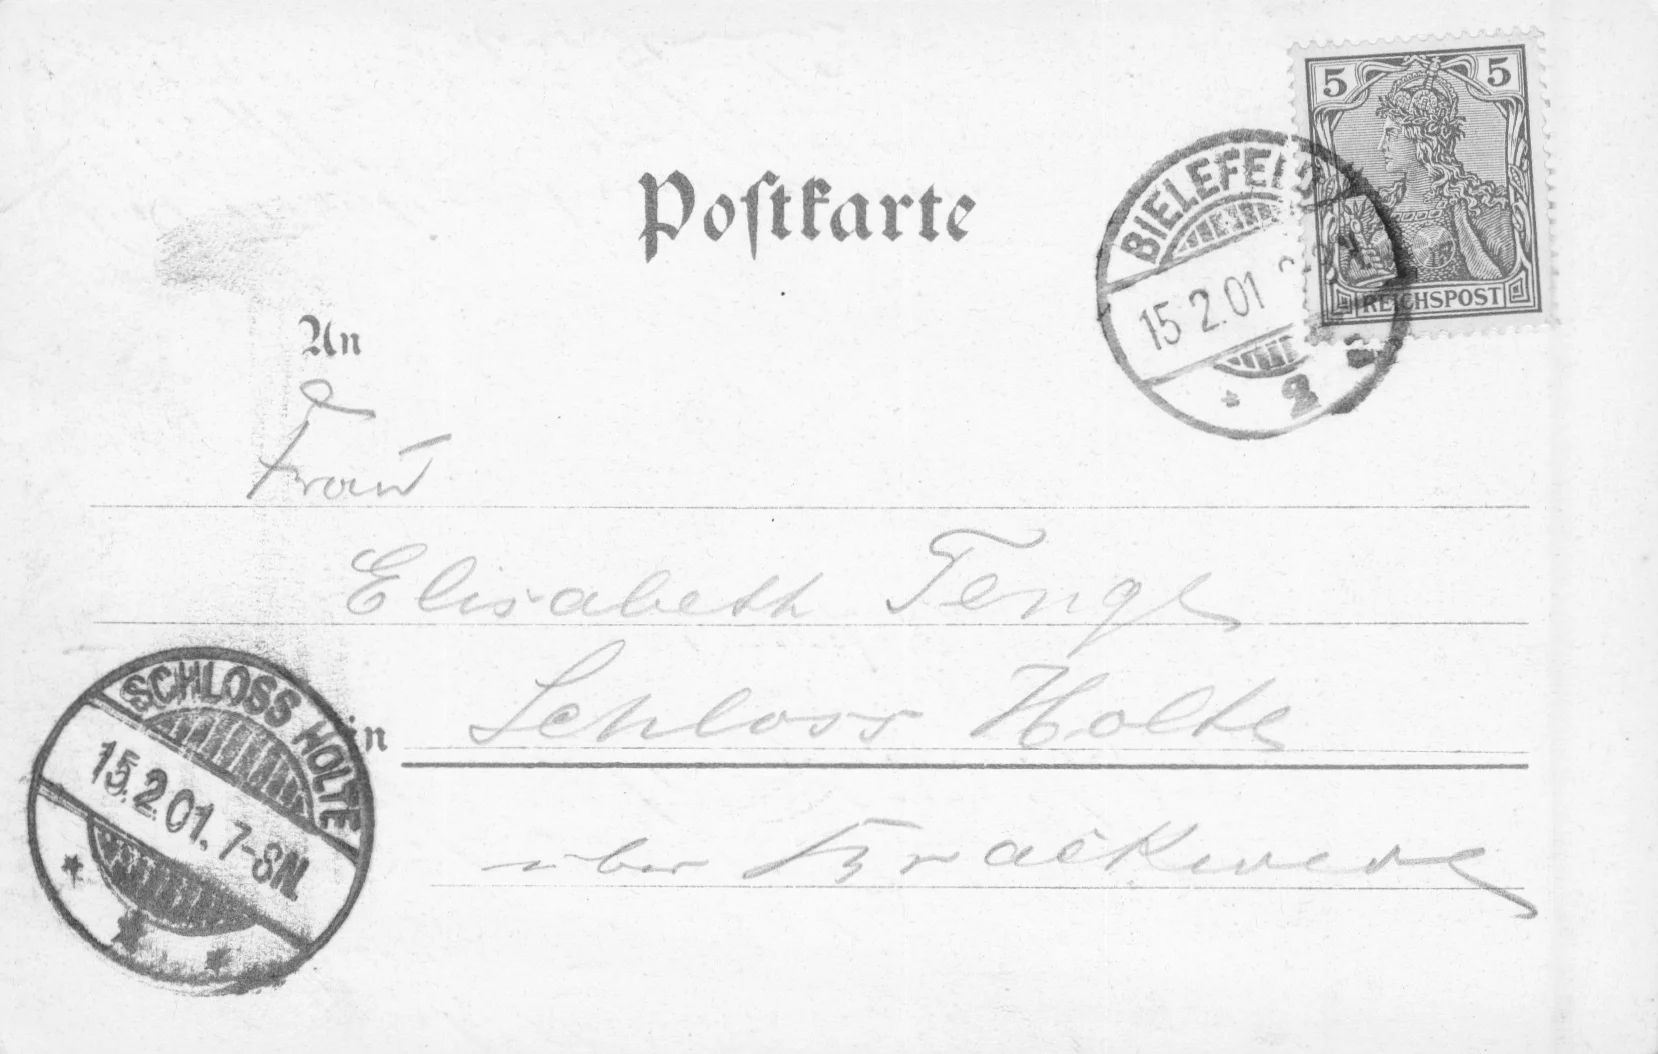 5 5
REICHSPOST
BIELEFELD
15 2.01
2
Postkarte
An
Frau
Elisabeth Tenge
in Schloss Holte
über Brackwede
SCHLOSS HOLTE
15.2.01. 7-8N.